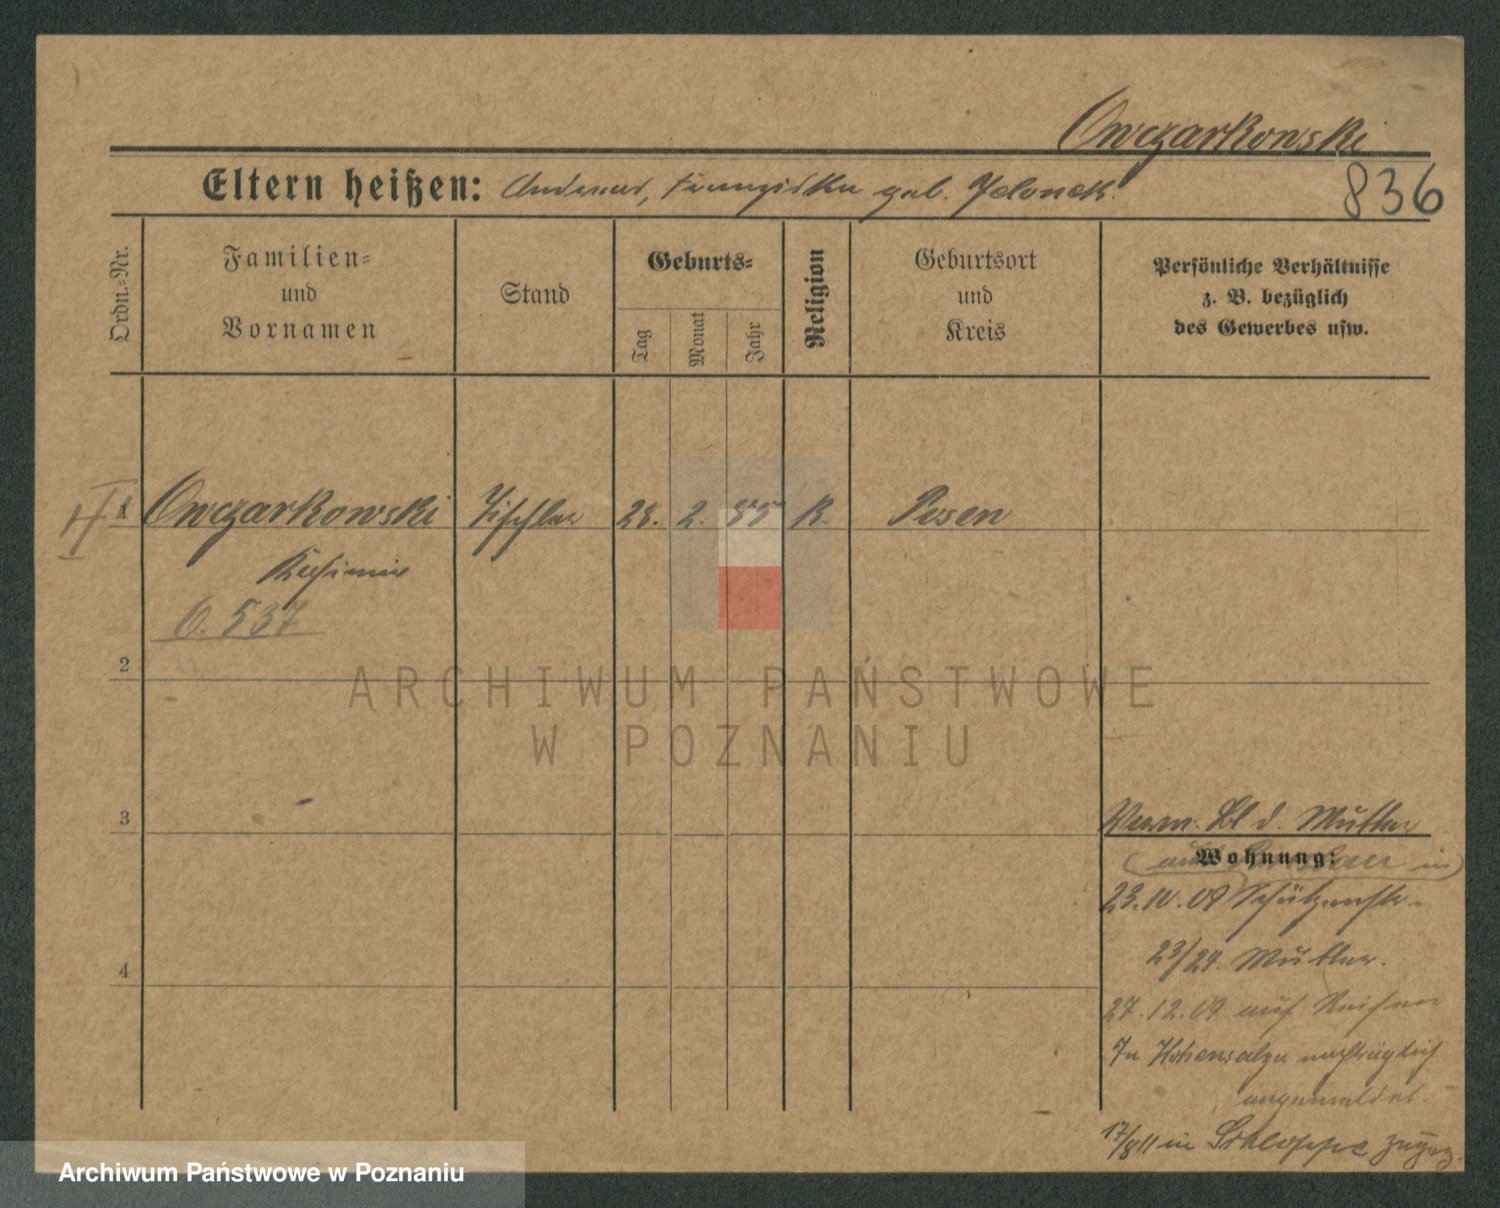 Owczarkowski
836
Eltern heißen: Andreas, Franziska geb. Jelonek.
Ordn.-Nr.
Familien- und Vornamen
Stand
Geburts-
Tag
Monat
Jahr
Religion
Geburtsort und Kreis
Persönliche Verhältnisse
z. B. bezüglich
des Gewerbes usw.
1 Owczarkowski Tischler 28. 2. 85 K. Posen
Kasimir
O. 537
2
ARCHIWUM PAŃSTWOWE
W POZNANIU
3
Verm. Bl d. Mutter
Wohnung:
23.10.09 Schützenstr.
4
23/24. Mutter.
27.12.09 auf Reisen
In Hohensalza nachträglich
angemeldet.
17/8 11 in Schloppe zugez.
Archiwum Państwowe w Poznaniu